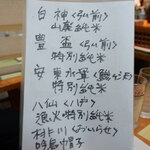 白神<弘前>
山廃純米
豊盃<弘前>
特別純米
安東水軍<鰺ヶ沢>
特別純米
八仙<八戸>
浪火特別純米
村井<おいらせ>
吟烏帽子